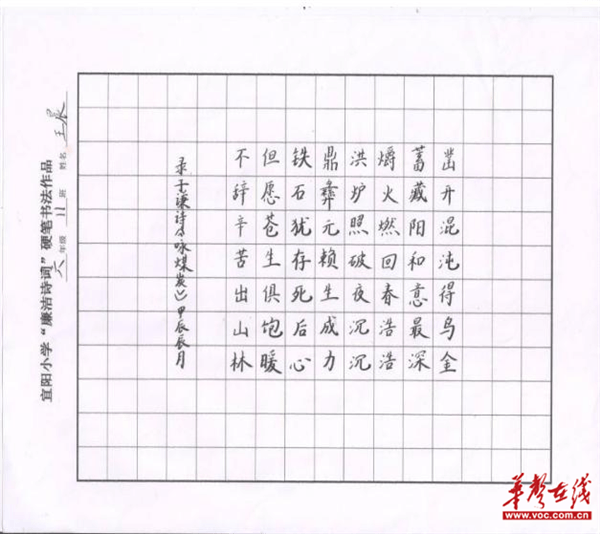 凿开混沌得乌金
蓄藏阳和意最深
爝火燃回春浩浩
洪炉照破夜沉沉
鼎彝元赖生成力
铁石犹存死后心
但愿苍生俱饱暖
不辞辛苦出山林
录于谦诗《咏煤炭》甲辰辰月
宜阳小学“廉洁诗词”硬笔书法作品
六年级 11 班 姓名
华声在线
www.voc.com.cn